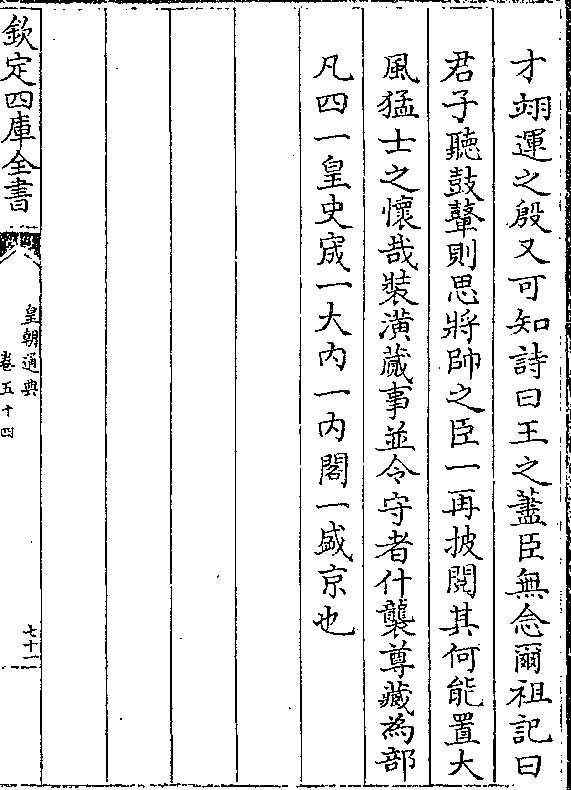 才翊運之殷又可知詩曰王之藎臣無念爾祖記曰
君子聽鼓鼙則思將帥之臣一再披閱其何能置大
風猛士之懷哉裝潢蕆事並令守者什襲尊藏為部
凡四一皇史宬一大內一內閣一盛京也
欽定四庫全書
皇朝通典
卷五十四
七十二